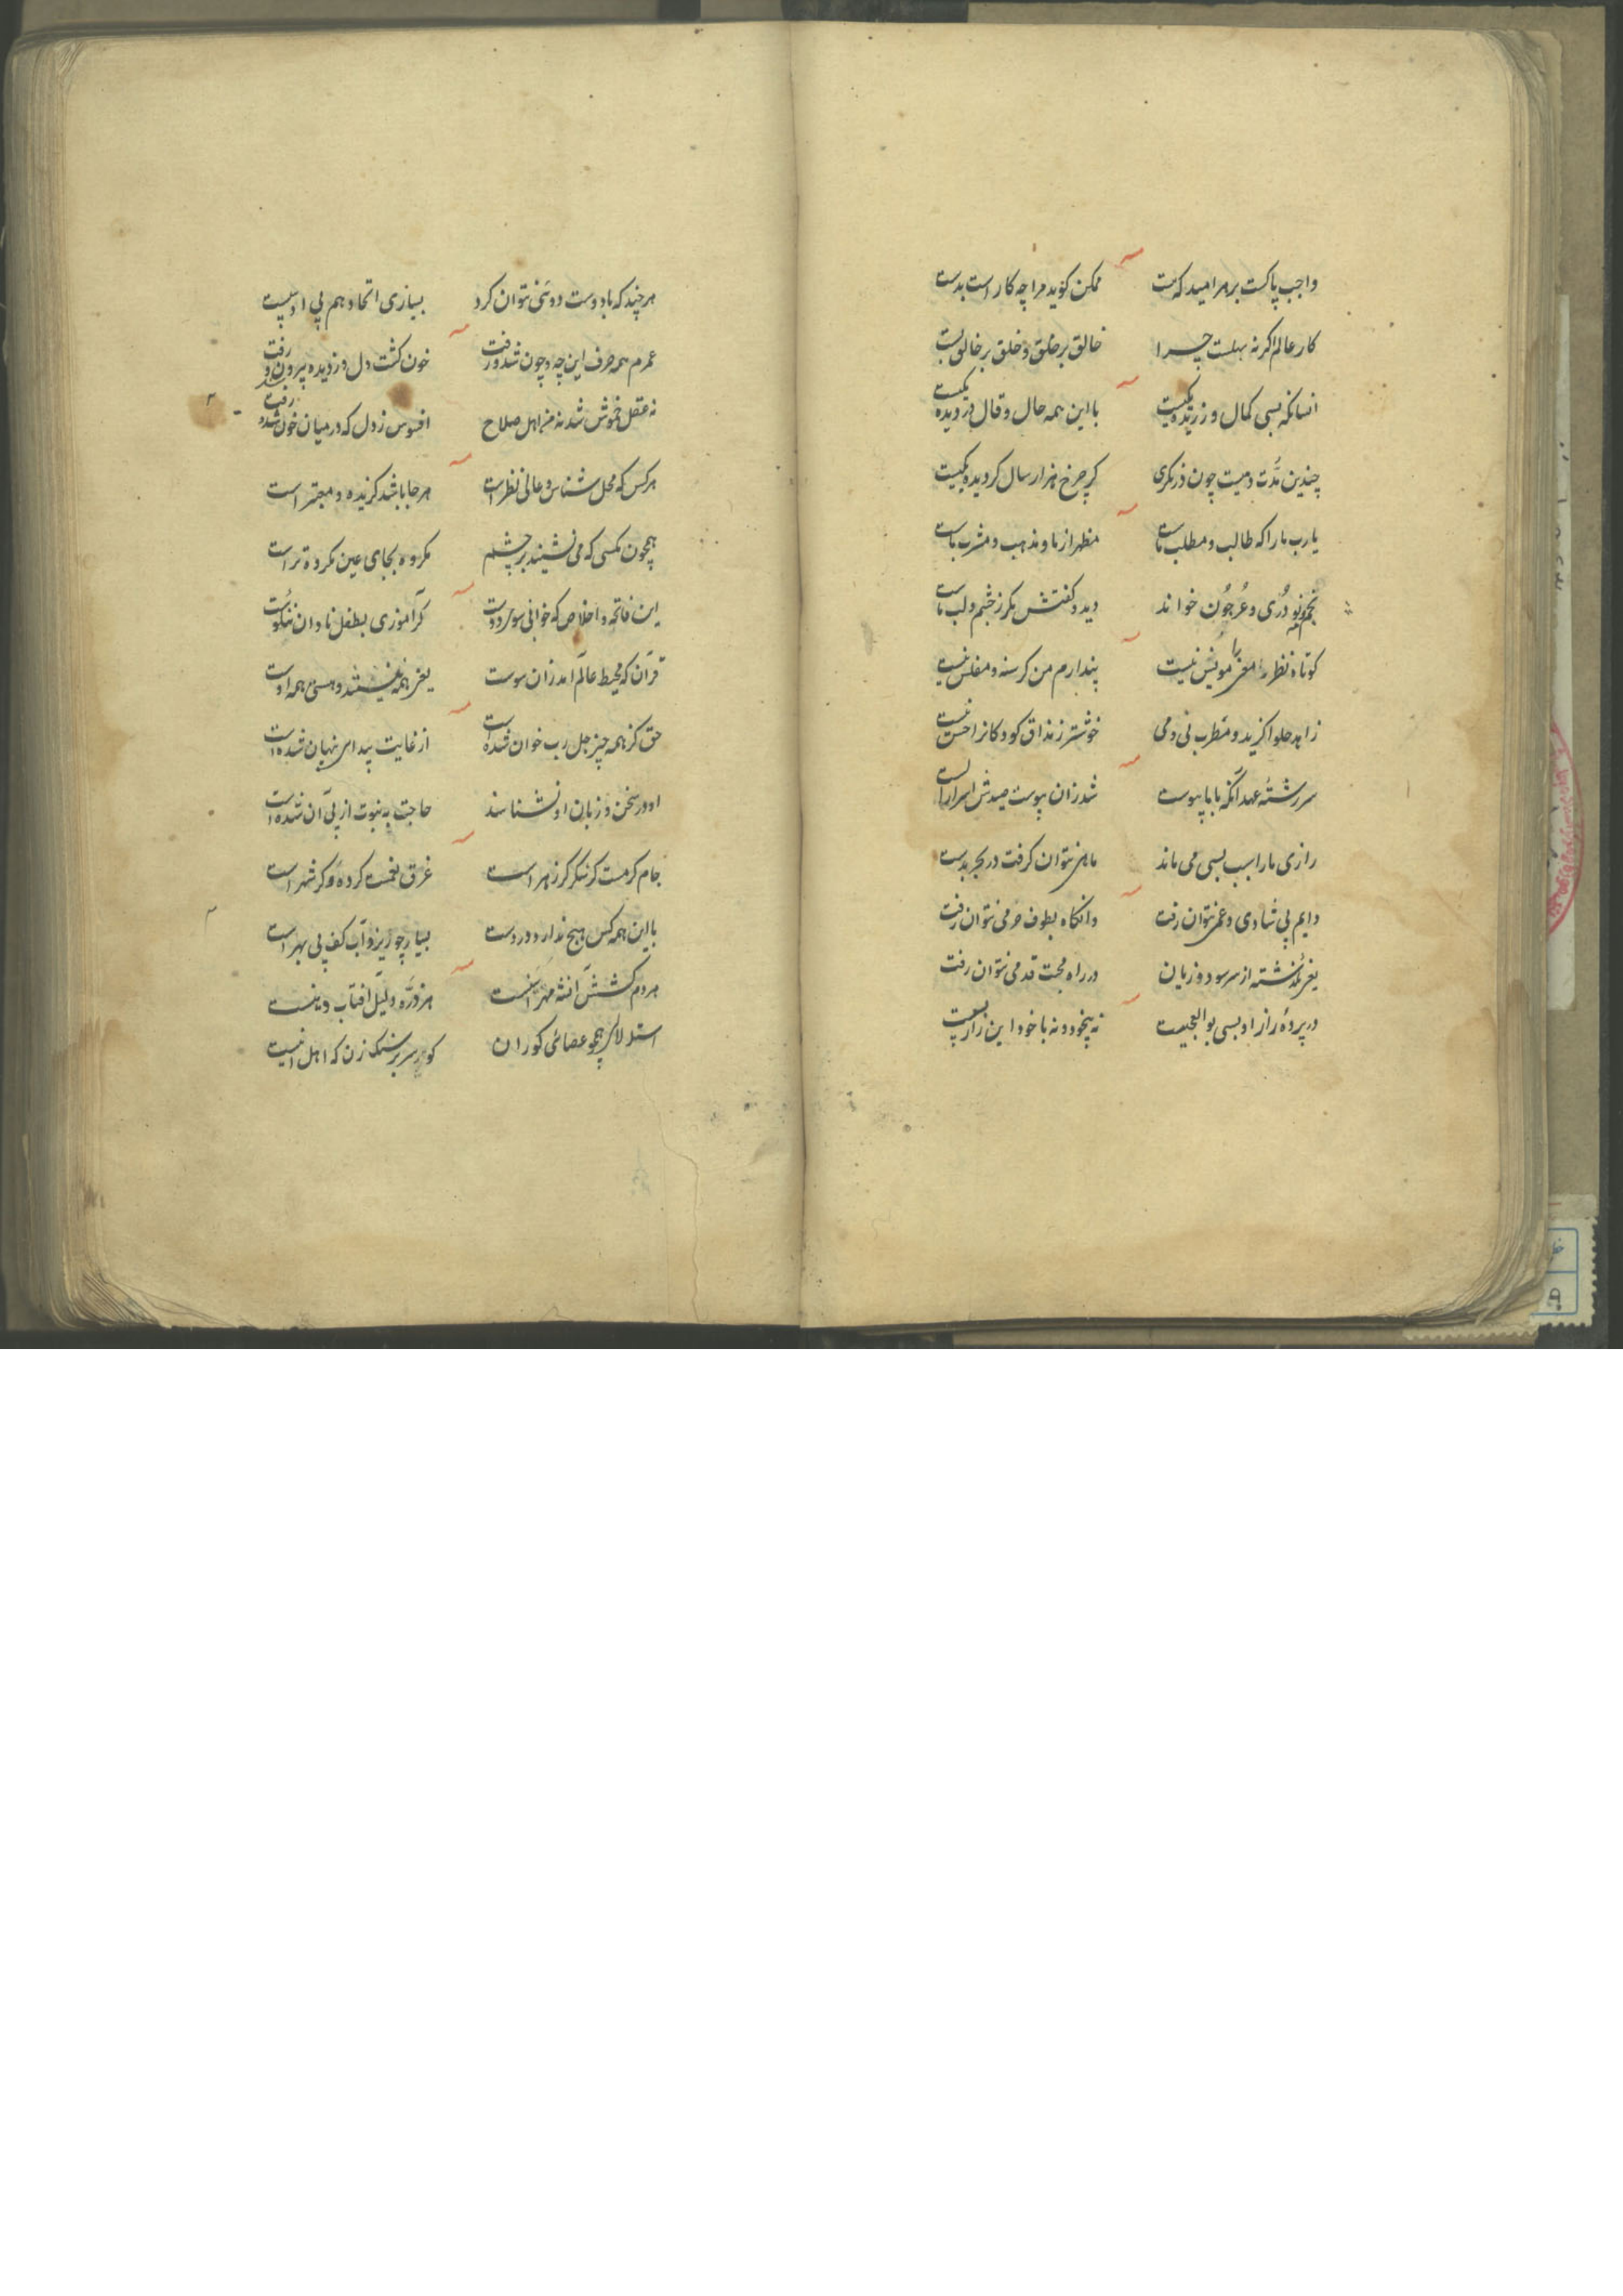 واجب پاکست بر هر امید که هست ممکن گوید مرا چه کار است بدست
کار عالم اگر نه سهلست چرا خالق بر خلق و خلق بر خالق بست
انسانکه بسی کمال ورزیده یکیست با این همه حال و قال در دیده یکیست
چندین مدت دمیست چون در نگری گر چرخ هزار سال گردیده یکیست
یا رب ما را که طالب و مطلب ماست مظهر از ما و مذهب و مشرب ماست
دری و عرجون خواند دید و گفتش مگر ز خشم و لب ماست
کوتاه نظر را مونس نیست پندارم من گرسنه و مفلس نیست
زاهد حلوا گزید و مطرب نی و می خوشتر ز مذاق کودکانرا حس نیست
سررشته عهد آنکه با ما پیوست شد زان پیوست صیدش اسرار الست
رازی ما را سبب بسی می ماند ماهی نتوان گرفت در بحر بدست
دایم پی شادی و غمی نتوان رفت وانگاه بطوف حرمی نتوان رفت
یعنی نگذشته از سر سود و زیان در راه محبت قدمی نتوان رفت
در پرده راز او بسی بوالعجبیست نه بیخود و نه با خود این راز
هر چند که با دوست دوئی نتوان کرد بسیاری اتحاد هم بی ادبیست
عمرم همه صرف این چه و چون شد و رفت خون گشت دل و ز دیده بیرون شد و رفت
نه عقل خموش شد نه اهل صلاح افسوس ز دل که در میان خون شد و رفت
هر کس که محل شناس و عالی نظر است هر جا باشد گزیده و معتبر است
همچون مگسی که می نشیند بر چشم مکروه بجای عین مکروه تر است
این فاتحه و اخلاص که خوانی سوی دوست گر آموزی بطفل نادان نیکوست
قرآن که محیط عالم آمد زان سوست یعنی همه نیستند و هستی همه اوست
حق کز همه چیز جل رب خوان شده است از غایت پیدایی نهان شده است
او در سخن و زبان او نشناسند حاجت به نبوت از پی آن شده است
جام کرمست گر شکر گر زهر است غرق نعمست گر ده و گر شهر است
با این همه کس هیچ ندارد در دست بسیار چو ریزد آب کف بی بهر است
هر دم کششی آتشه مهر هر ذره دلیل آفتاب
استدلالی همچو عصای کوران گو بر سر سنگ زن که اهل